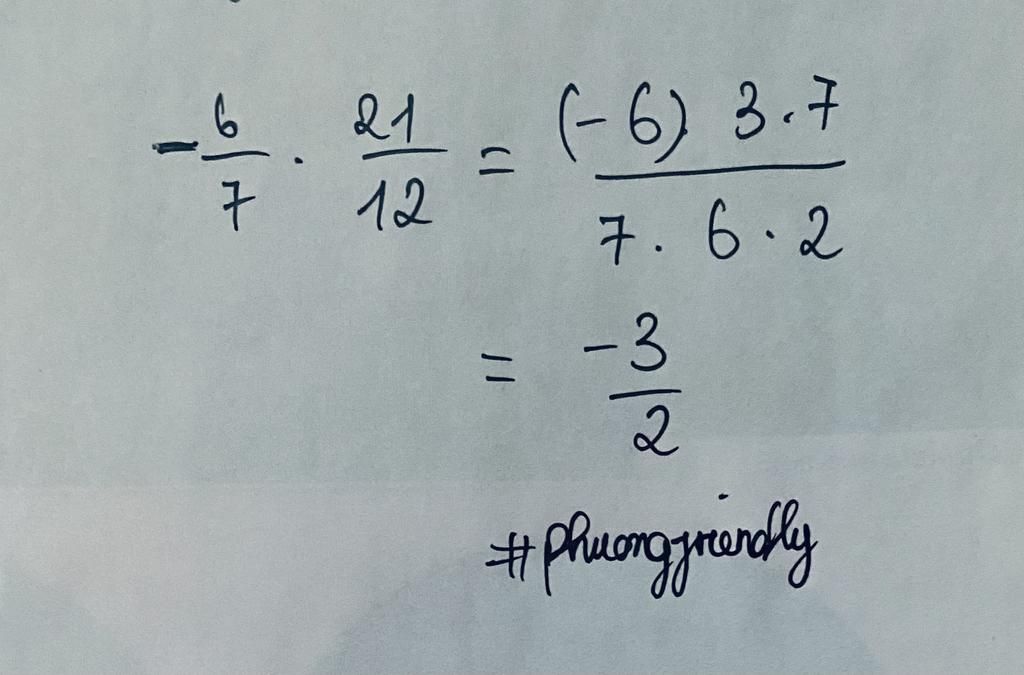 -6/7 . 21/12 = (-6) 3.7 / 7. 6.2
= -3/2
#phuongfriendly